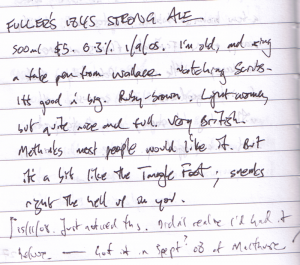 FULLER'S 1845 STRONG ALE
500ml $5. 6.3% 1/9/08. I'm old, and using
a fake pen from Wallace. Watching Scrubs.
It's good & big. Ruby-brown. Light aroma,
but quite nice and full. Very British.
Methinks most people would like it. But
it's a bit like the Tangle Foot; sneaks
right the hell up on you.
[15/11/08. Just noticed this. Didn't realize I'd had it
before. — Got it in Sept? 08 at Malthouse!